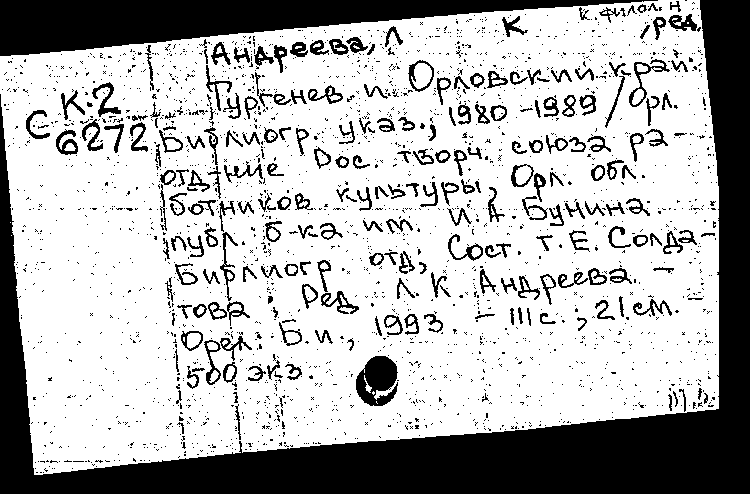 к. филол. н
Андреева, Л К , ред
Тургенев и Орловский край:
С К-2
6272
Библиогр. указ., 1980-1989 / Орл.
отд-ние Рос. творч. союза ра-
ботников культуры, Орл. обл.
публ. б-ка им. И. А. Бунина.
Библиогр. отд; Сост. Т. Е. Солда-
това; Ред. Л. К. Андреева. -
Орел: Б.и., 1993. - 111 с.; 21 см. -
500 экз.